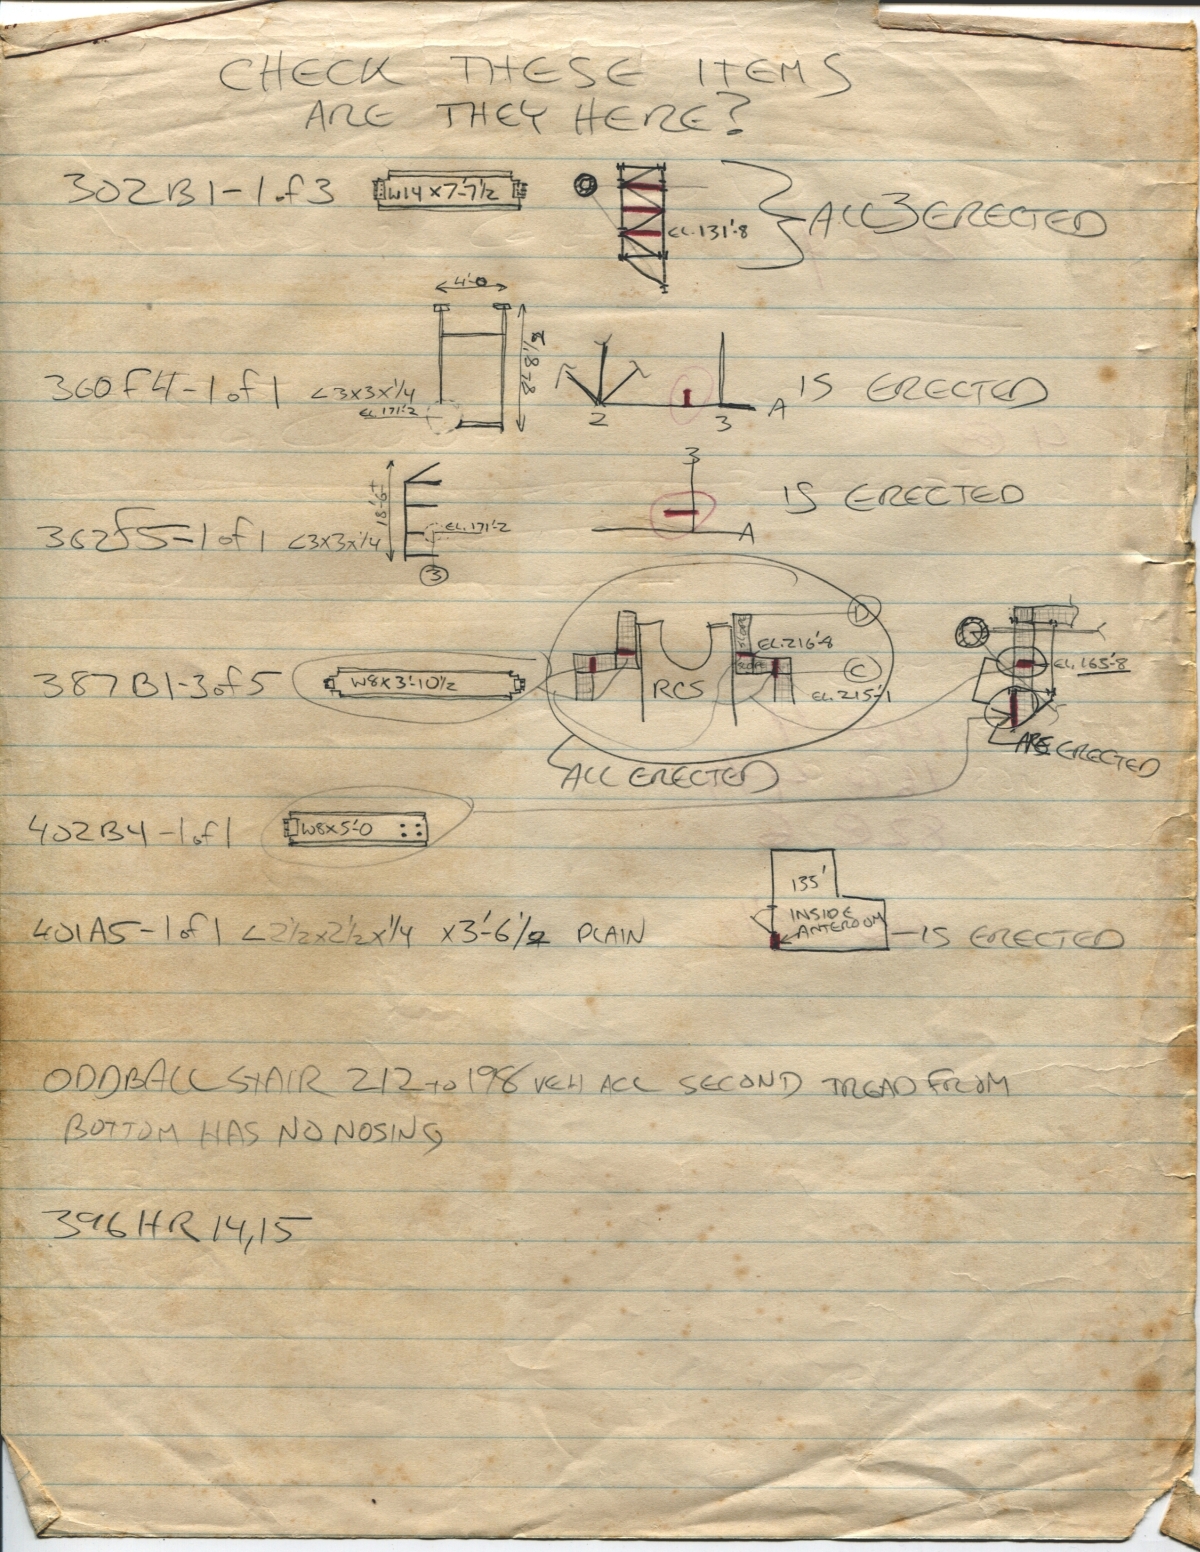 CHECK THESE ITEMS
ARE THEY HERE?
302B1-1of3 W14X7'-7½ EL.131'-8 ALL 3 ERECTED
4'-0
360F4-1of1 <3X3X¼ EL.171'-2 2 3 A IS ERECTED
3
18'-6 IS ERECTED
362F5-1of1 <3X3X¼ EL.171'-2 A
3
D
387B1-3of5 W8X3'-10½ RCS EL.216'-8 C EL.215'-1 EL.165'-8
ARE ERECTED
ALL ERECTED
402B4-1of1 W8X5'-0
135'
401A5-1of1 <2½X2½X¼ X3'-6½ PLAIN INSIDE ANTEROOM IS ERECTED
ODDBALL STAIR 212 to 198 ALL SECOND TREAD FROM
BOTTOM HAS NO NOSING
396HR14,15